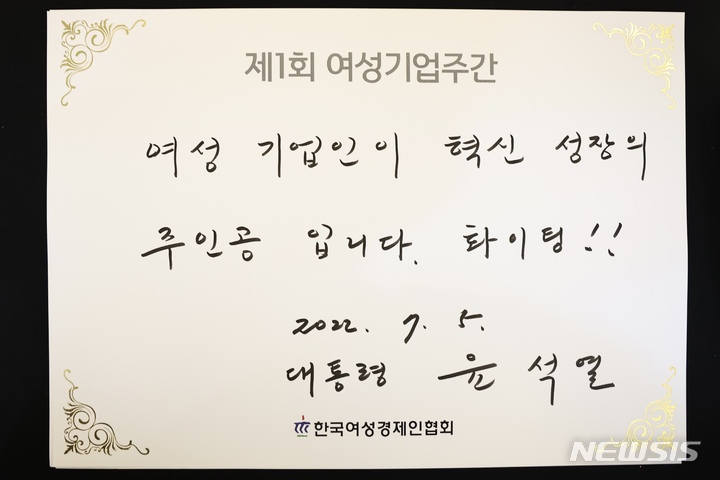 제1회 여성기업주간
여성 기업인이 혁신 성장의
주인공 입니다. 화이팅!!
2022. 7. 5.
대통령 윤석열
한국여성경제인협회
NEWSIS